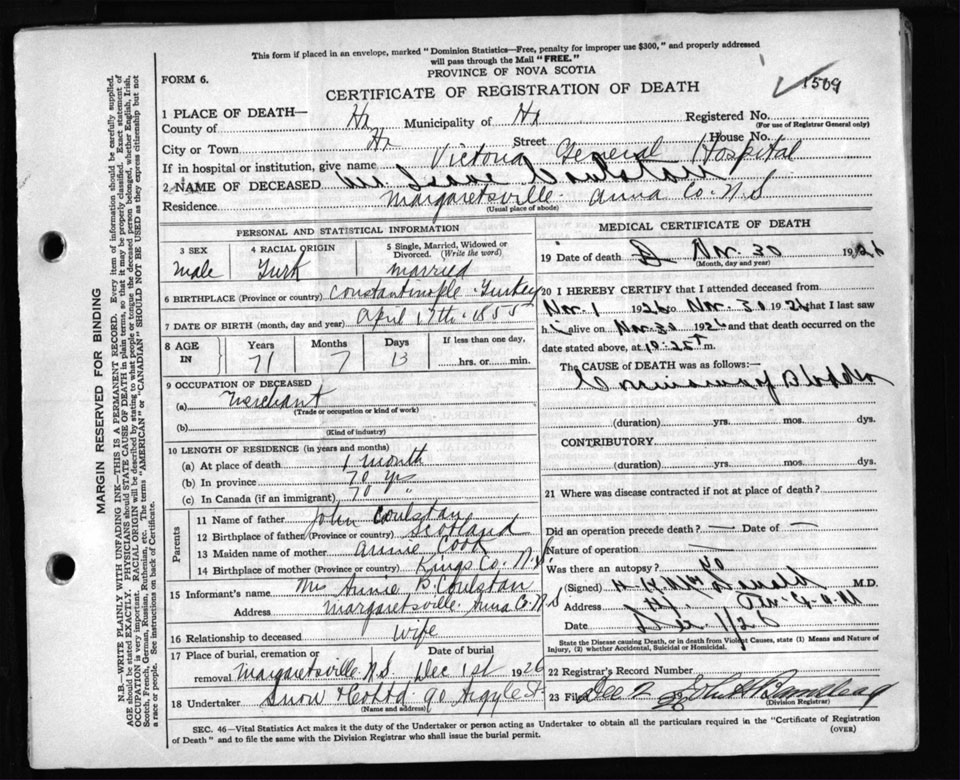 This form if placed in an envelope, marked "Dominion Statistics—Free, penalty for improper use $300," and properly addressed
will pass through the Mail "FREE."
FORM 6.
PROVINCE OF NOVA SCOTIA
CERTIFICATE OF REGISTRATION OF DEATH
1509
1 PLACE OF DEATH—
County of Hx Municipality of Hx Registered No.
(For use of Registrar General only)
City or Town Hx Street House No.
If in hospital or institution, give name Victoria General Hospital
2 NAME OF DECEASED Isaac Coulstan
Residence Margaretsville Anna Co. N.S
(Usual place of abode)
PERSONAL AND STATISTICAL INFORMATION
3 SEX 4 RACIAL ORIGIN 5 Single, Married, Widowed or Divorced. (Write the word)
Male Turk married
6 BIRTHPLACE (Province or country) Constantinople Turkey
7 DATE OF BIRTH (month, day and year) April 17th 1855
8 AGE IN Years Months Days If less than one day,
71 7 13 hrs. or min.
9 OCCUPATION OF DECEASED
(a) Merchant
(Trade or occupation or kind of work)
(b)
(Kind of industry)
10 LENGTH OF RESIDENCE (in years and months)
(a) At place of death 1 month
(b) In province 70 yr
(c) In Canada (if an immigrant) 70 "
Parents
11 Name of father John Coulstan
12 Birthplace of father (Province or country) Scotland
13 Maiden name of mother Annie Cook
14 Birthplace of mother (Province or country) Kings Co. N.S.
15 Informant's name Mrs Annie B. Coulstan
Address Margaretsville Anna Co. N.S
16 Relationship to deceased wife
17 Place of burial, cremation or removal Date of burial
Margaretsville N.S. Dec 1st 1926
18 Undertaker Snow & Co Ltd 90 Argyle St
(Name and address)
MEDICAL CERTIFICATE OF DEATH
19 Date of death Nov. 30 1926
(Month, day and year)
20 I HEREBY CERTIFY that I attended deceased from
Nov. 1 1926 to Nov. 30 1926 that I last saw
h alive on Nov 30 1926 and that death occurred on the
date stated above, at m.
The CAUSE of DEATH was as follows:—
Carcinoma of Bladder
(duration) yrs. mos. dys.
CONTRIBUTORY
(duration) yrs. mos. dys.
21 Where was disease contracted if not at place of death?
Did an operation precede death? — Date of —
Nature of operation —
Was there an autopsy? no
(Signed) M.D.
Address
Date
State the Disease causing Death, or in death from Violent Causes, state (1) Means and Nature of
Injury, (2) whether Accidental, Suicidal or Homicidal.
22 Registrar's Record Number
23 Filed Dec
(Division Registrar)
SEC. 46—Vital Statistics Act makes it the duty of the Undertaker or person acting as Undertaker to obtain all the particulars required in the "Certificate of Registration
of Death" and to file the same with the Division Registrar who shall issue the burial permit.
(OVER)
MARGIN RESERVED FOR BINDING
N.B.—WRITE PLAINLY WITH UNFADING INK—THIS IS A PERMANENT RECORD. Every item of information should be carefully supplied.
AGE should be stated EXACTLY. PHYSICIANS should STATE CAUSE OF DEATH in plain terms, so that it may be properly classified. Exact statement of
OCCUPATION is very important. RACIAL ORIGIN will be described by stating to what people or tongue the deceased person belonged, whether English, Irish,
Scotch, French, German, Russian, Ruthenian, etc. The terms "AMERICAN" or "CANADIAN" SHOULD NOT BE USED as they express citizenship but not
a race or people. See instructions on back of Certificate.